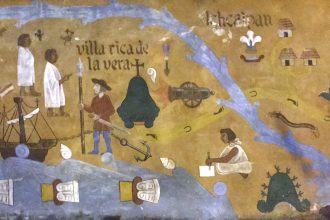 villa rica de
la vera
Ichcalpan